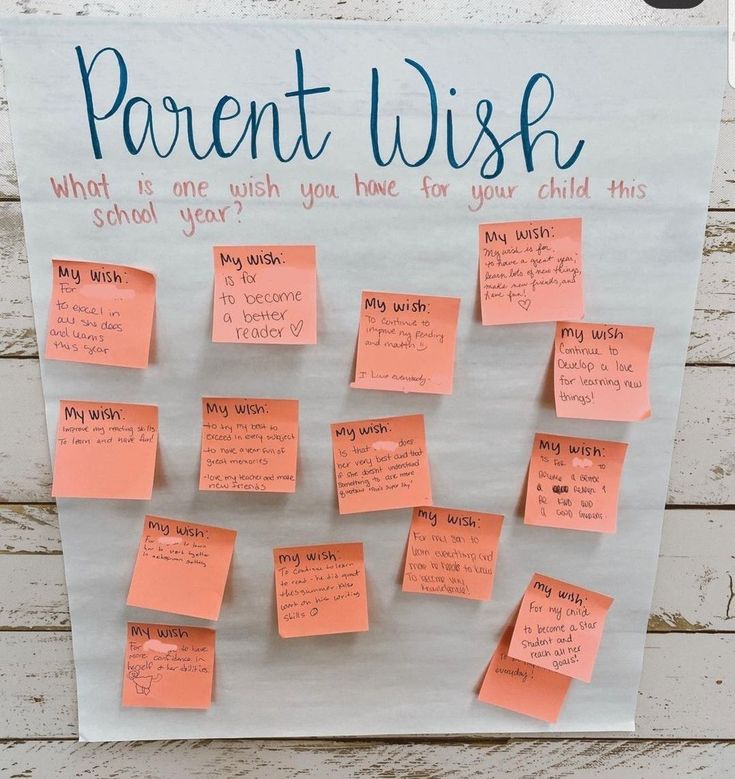 Parent Wish
What is one wish you have for your child this
school year?
My Wish:
For
to excel in
all she does
and learns
this year
My Wish:
is for
to become
a better
reader ♡
My Wish:
To continue to
improve my reading
and math
I love everybody
My Wish:
My wish is for
to have a great year,
learn lots of new things,
make new friends, and
have fun!
♡
My Wish
Continue to
Develop a love
for learning new
things!
My Wish:
Improve my reading skills.
To learn and have fun!
My Wish:
-to try my best to
exceed in every subject
-to have a year full of
great memories
-love my teacher and make
new friends
My Wish:
Is that does
her very best and that
if she doesnt understand
something to ask more
questions
My Wish:
Is for to
become a better
reader &
be kind and
a good
My Wish:
For to learn
how to work together
in a
My Wish:
To continue to learn
to read - he did great
this summer. Also
work on his writing
skills ☺
My Wish:
For my son to
learn everything and
more he needs to know
To become very
My Wish
For to have
more confidence in
herself & her abilities.
My Wish:
For my child
to become a star
student and
reach all her
goals!
everyday!